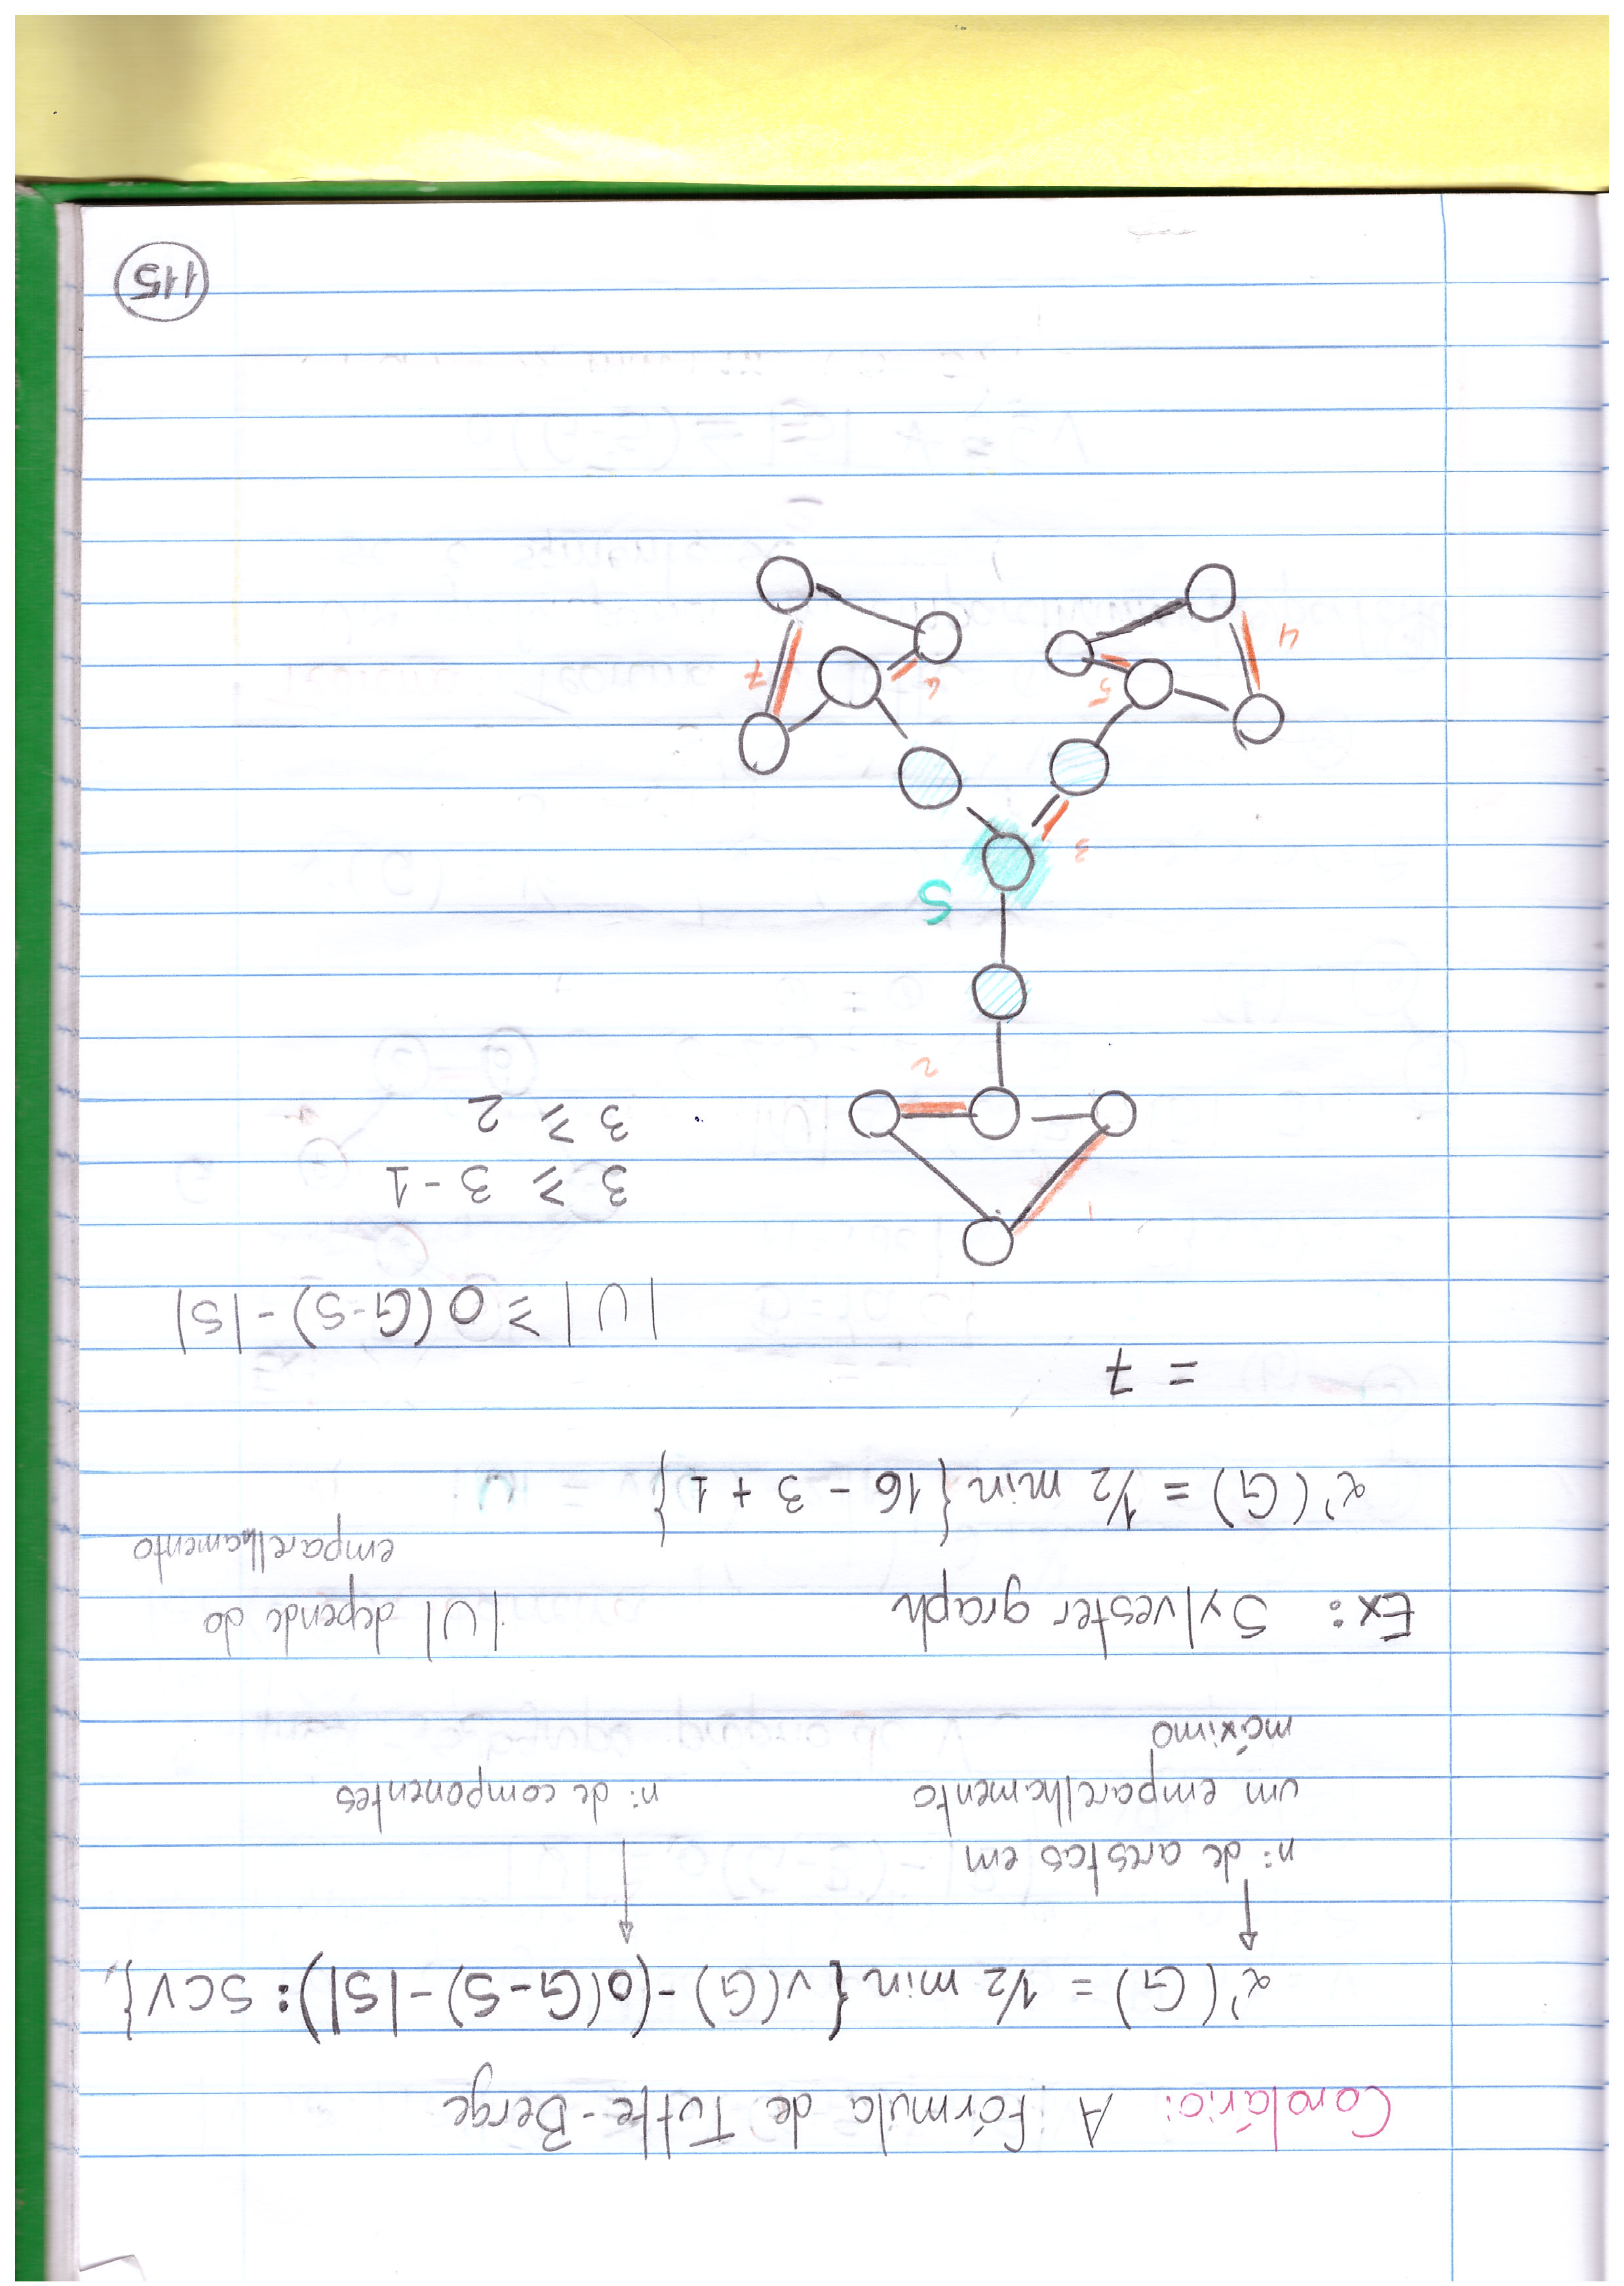 Corolário: A fórmula de Tutte-Berge
α'(G) = 1/2 min{v(G) - (o(G-S) - |S|): S⊂V},
nº de arestas em
um emparelhamento
máximo
nº de componentes
Ex: Sylvester graph
|U| depende do
emparelhamento
α'(G) = 1/2 min{16 - 3 + 1}
= 7
|U| ≥ o(G-S) - |S|
3 ≥ 3 - 1
3 ≥ 2
1
2
S
3
4
5
6
7
115